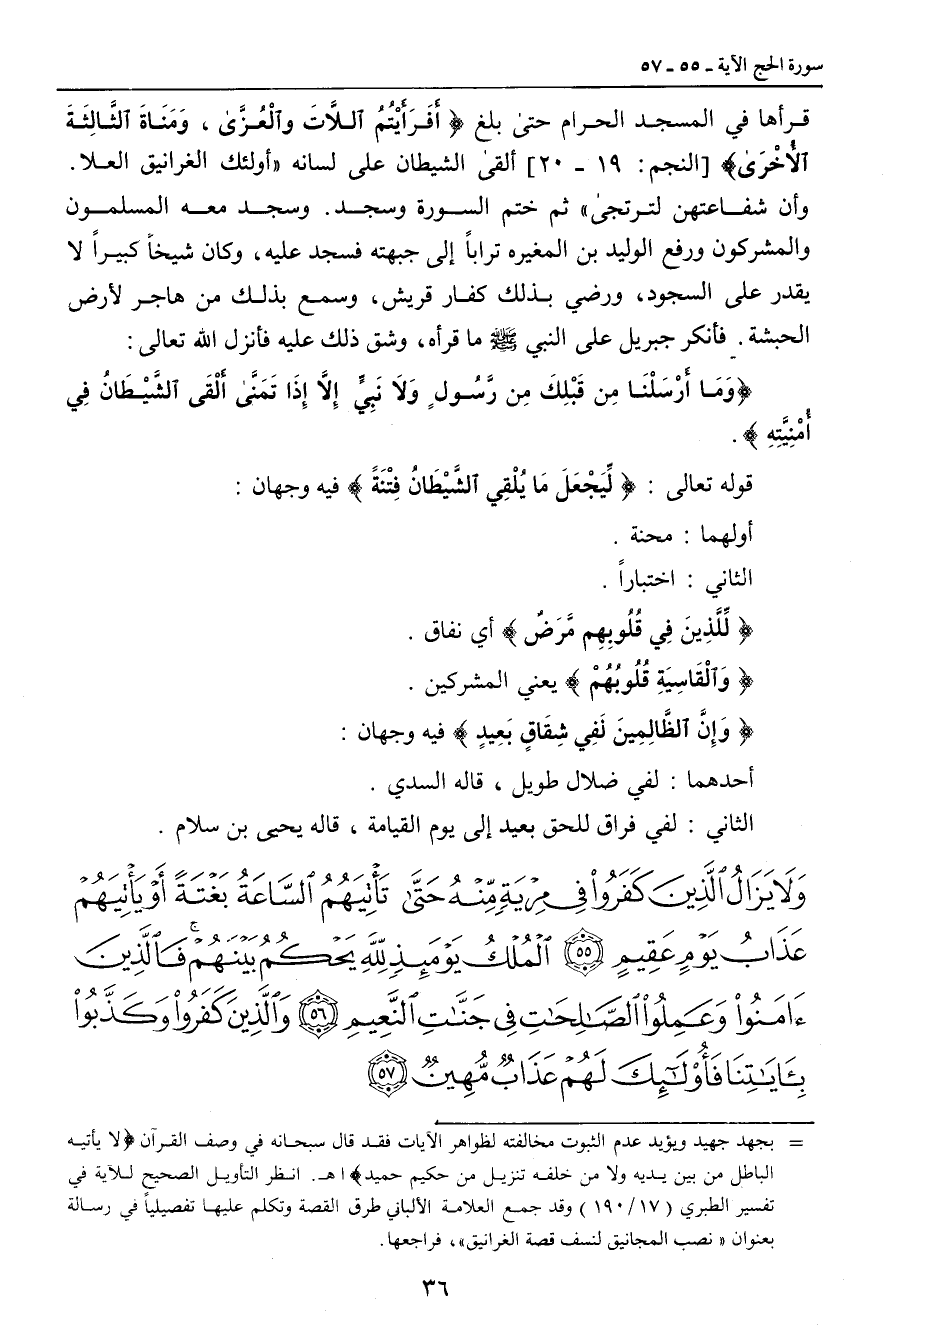 سورة الحج الآية ـ ٥٥ ـ ٥٧
قرأها في المسجد الحرام حتىٰ بلغ ﴿ أَفَرَأَيْتُمُ ٱللَّاتَ وَٱلْعُزَّىٰ ، وَمَنَاةَ ٱلثَّالِثَةَ
ٱلْأُخْرَىٰ﴾ [النجم: ١٩ ـ ٢٠] ألقىٰ الشيطان على لسانه «أولئك الغرانيق العلا.
وأن شفاعتهن لترتجىٰ» ثم ختم السورة وسجد. وسجد معه المسلمون
والمشركون ورفع الوليد بن المغيره تراباً إلى جبهته فسجد عليه، وكان شيخاً كبيراً لا
يقدر على السجود، ورضي بذلك كفار قريش، وسمع بذلك من هاجر لأرض
الحبشة. فأنكر جبريل على النبي ﷺ ما قرأه، وشق ذلك عليه فأنزل الله تعالى:
﴿وَمَا أَرْسَلْنَا مِن قَبْلِكَ مِن رَّسُولٍ وَلَا نَبِيٍّ إِلَّا إِذَا تَمَنَّىٰ أَلْقَى ٱلشَّيْطَانُ فِي
أُمْنِيَّتِهِ ﴾ .
قوله تعالى : ﴿ لِّيَجْعَلَ مَا يُلْقِي ٱلشَّيْطَانُ فِتْنَةً ﴾ فيه وجهان :
أولهما : محنة .
الثاني : اختباراً .
﴿ لِّلَّذِينَ فِي قُلُوبِهِم مَّرَضٌ ﴾ أي نفاق .
﴿ وَٱلْقَاسِيَةِ قُلُوبُهُمْ ﴾ يعني المشركين .
﴿ وَإِنَّ ٱلظَّالِمِينَ لَفِي شِقَاقٍ بَعِيدٍ ﴾ فيه وجهان :
أحدهما : لفي ضلال طويل ، قاله السدي .
الثاني : لفي فراق للحق بعيد إلى يوم القيامة ، قاله يحيى بن سلام .
وَلَا يَزَالُ ٱلَّذِينَ كَفَرُوا۟ فِى مِرْيَةٍ مِّنْهُ حَتَّىٰ تَأْتِيَهُمُ ٱلسَّاعَةُ بَغْتَةً أَوْ يَأْتِيَهُمْ
عَذَابُ يَوْمٍ عَقِيمٍ ٥٥ ٱلْمُلْكُ يَوْمَئِذٍ لِّلَّهِ يَحْكُمُ بَيْنَهُمْ ۚ فَٱلَّذِينَ
ءَامَنُوا۟ وَعَمِلُوا۟ ٱلصَّـٰلِحَـٰتِ فِى جَنَّـٰتِ ٱلنَّعِيمِ ٥٦ وَٱلَّذِينَ كَفَرُوا۟ وَكَذَّبُوا۟
بِـَٔايَـٰتِنَا فَأُو۟لَـٰٓئِكَ لَهُمْ عَذَابٌ مُّهِينٌ ٥٧
= بجهد جهيد ويؤيد عدم الثبوت مخالفته لظواهر الآيات فقد قال سبحانه في وصف القرآن ﴿لا يأتيه
الباطل من بين يديه ولا من خلفه تنزيل من حكيم حميد﴾ ا هـ. انظر التأويل الصحيح للآية في
تفسير الطبري ( ١٧/ ١٩٠ ) وقد جمع العلامة الألباني طرق القصة وتكلم عليها تفصيلياً في رسالة
بعنوان « نصب المجانيق لنسف قصة الغرانيق»، فراجعها.
٣٦